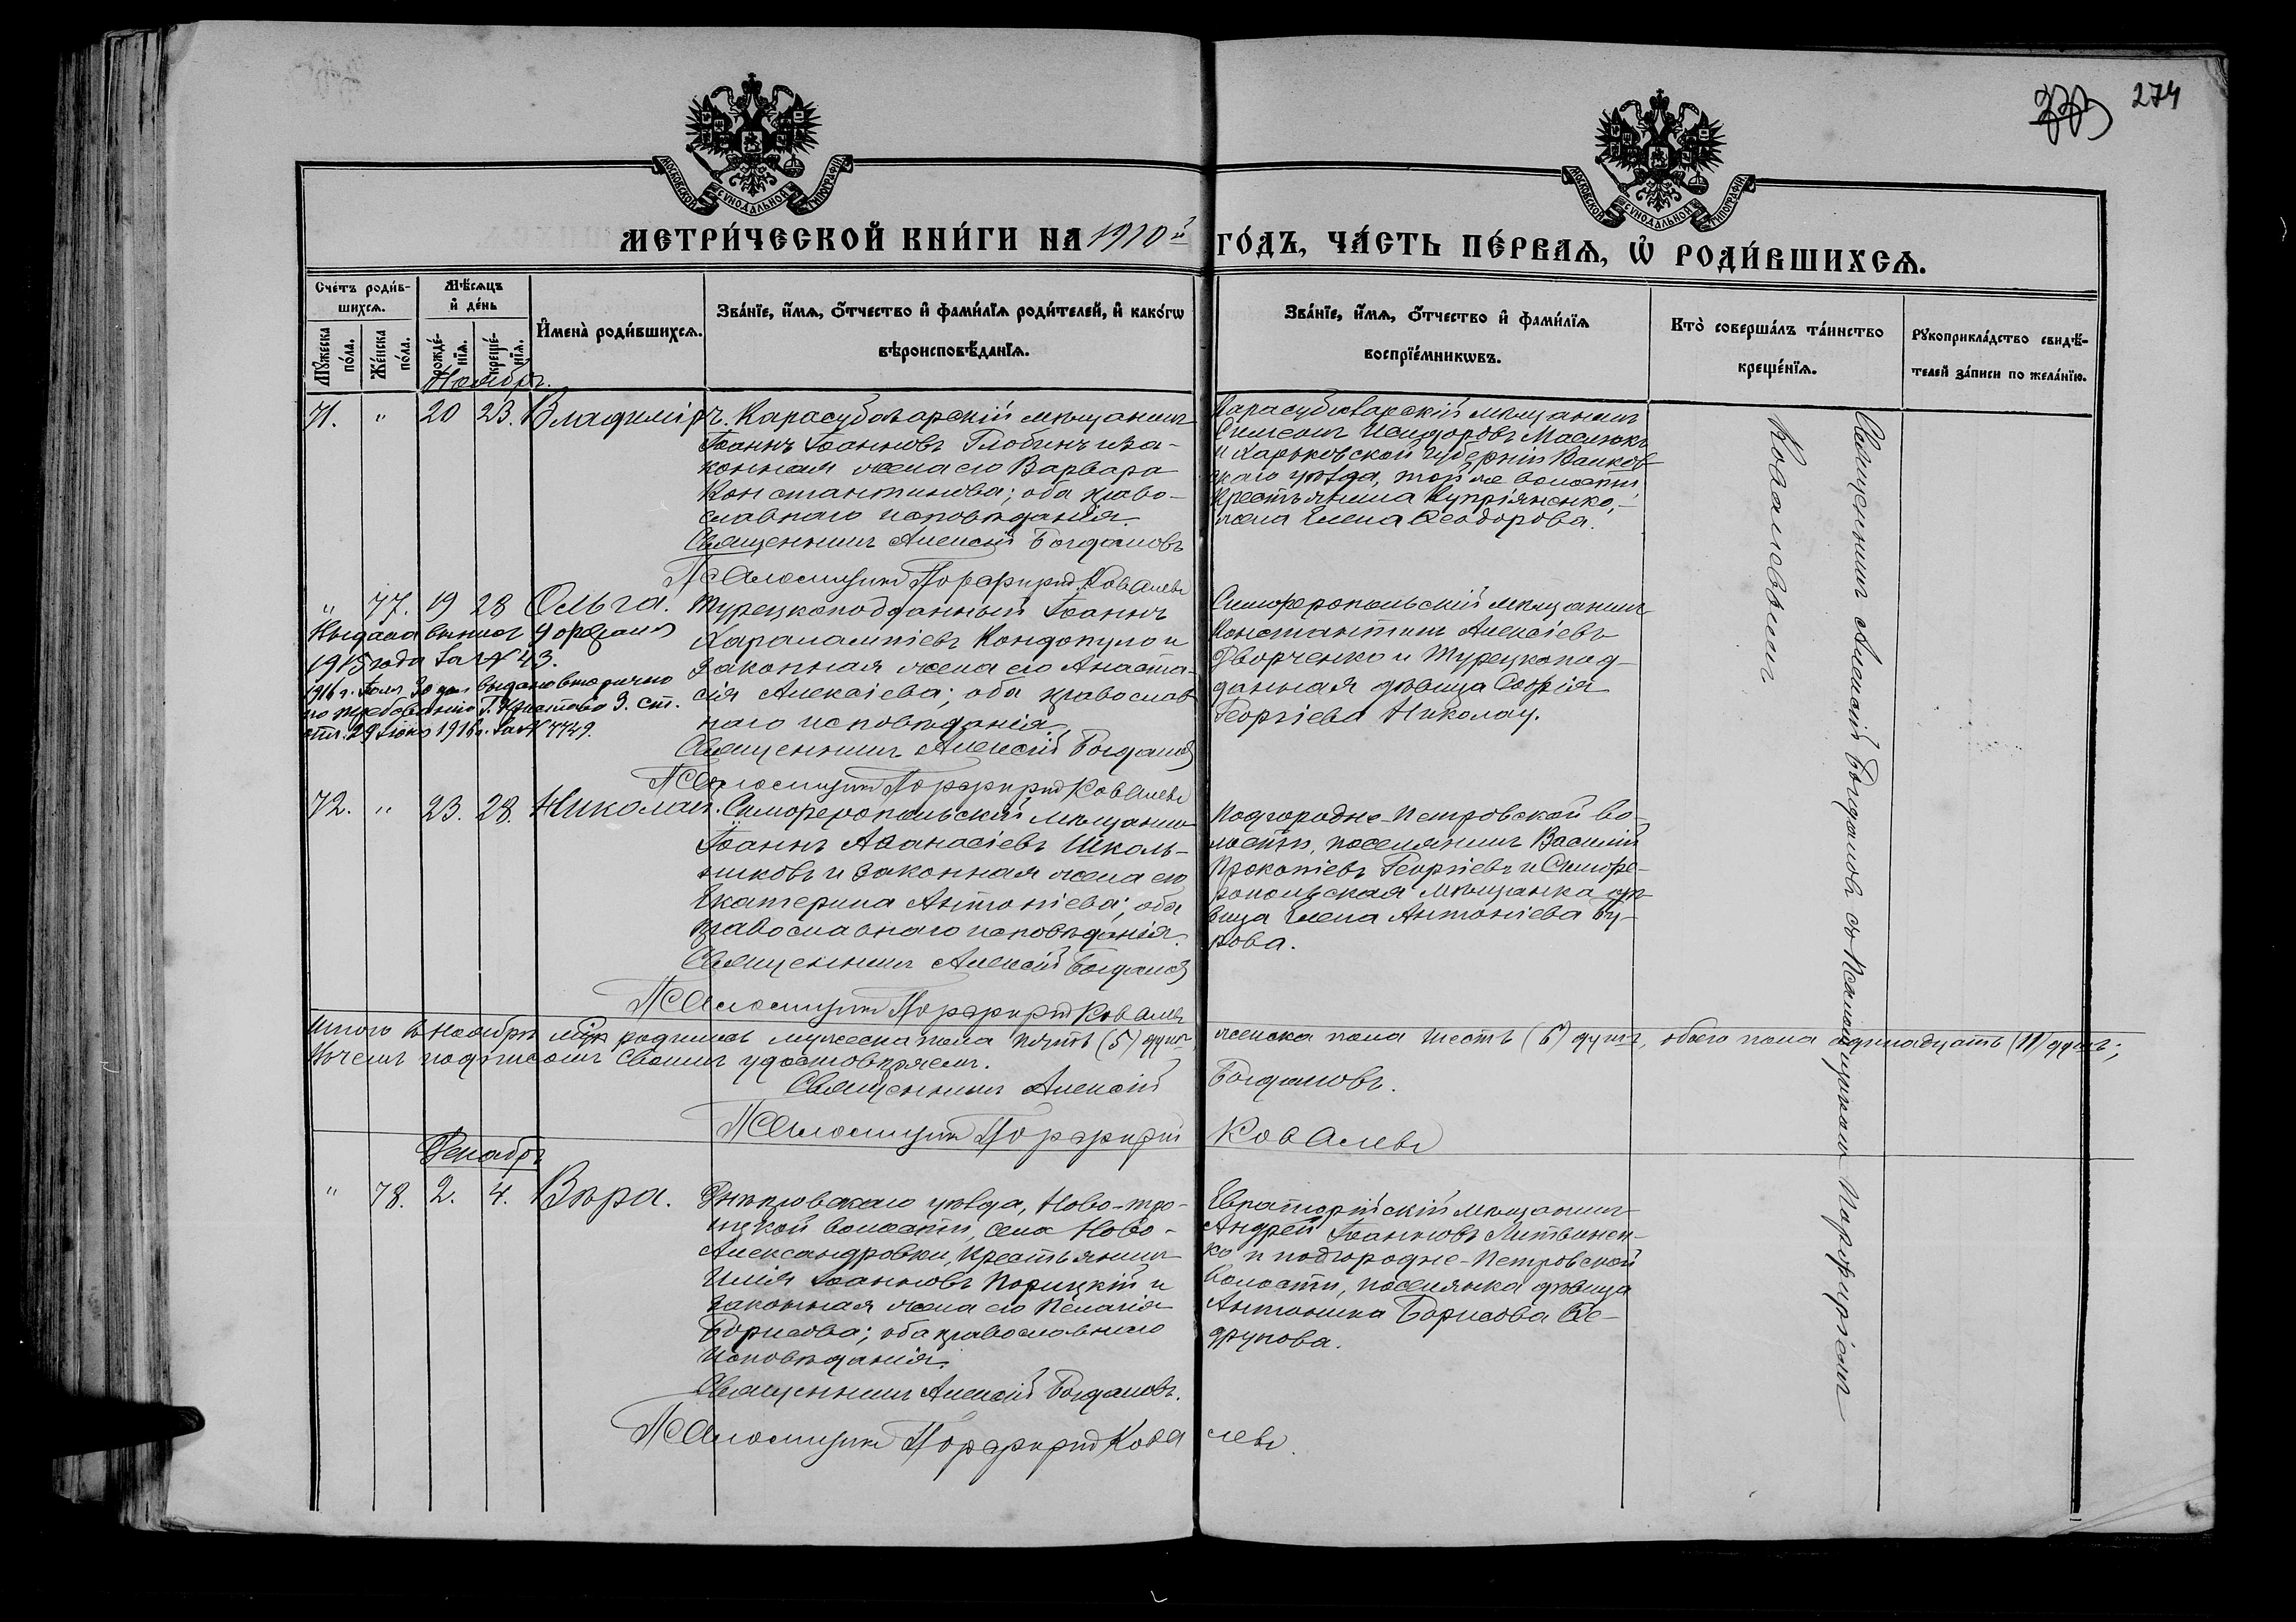 274
МОСКОВСКОЙ СѴНОДАЛЬНОЙ ТИПОГРАФІИ
МОСКОВСКОЙ СѴНОДАЛЬНОЙ ТИПОГРАФІИ
МЕТРИ́ЧЕСКОЙ КНИ́ГИ НА 1910й ГО́ДЪ, ЧА́СТЬ ПЕ́РВАѦ, Ѡ҆ РОДИ́ВШИХСѦ.
Сче́тъ роди́в-
шихсѧ.
Мꙋжеска по́ла.
Же́нска по́ла.
Мѣ́сѧцъ
и҆ де́нь
рожде́-нїѧ.
креще́-нїѧ.
И҆мена̀ роди́вшихсѧ.
Зва́нїе, и҆́мѧ, ѻ҆́тчество и҆ фами́лїѧ роди́телей, и҆ како́гѡ
вѣроисповѣ́данїѧ.
Зва́нїе, и҆́мѧ, ѻ҆́тчество и҆ фами́лїѧ
воспрїе́мникѡвъ.
Кто̀ соверша́лъ та́инство
креще́нїѧ.
Рꙋкоприкла́дство свидѣ́-
телей за́писи по жела́нїю.
Ноябрь.
71. " 20 23. Владимір
г. Карасубазарскій мѣщанинъ
Іоаннъ Іоанновъ Глобинъ и за-
конная жена его Варвара
Константинова; оба право-
славнаго исповѣданія.
Священникъ Алексій Богдановъ
Псаломщикъ Порфирій Ковалевъ
Карасубазарскій мѣщанинъ
Симеонъ Исидоровъ Масюкъ
и Харьковской губерніи Валков-
скаго уѣзда, той же волости
крестьянина Купріяненко,
жена Елена Ѳеодорова.
" 77. 19 28 Ольга.
Выдана выпись 4 февраля
1915 года за № 43.
1916 г. Іюля 30 дня выдано вторично
по требованію Г. Пристава 3. ст.
отъ 29 Іюня 1916 г. за № 7749.
Турецкоподданный Іоаннъ
Харалампіевъ Кондопуло и
законная жена его Анаста-
сія Алексіева; оба православ-
наго исповѣданія.
Священникъ Алексій Богдановъ
Псаломщикъ Порфирій Ковалевъ
Симферопольскій мѣщанинъ
Константинъ Алексіевъ
Дворченко и Турецкопод-
данная дѣвица Софія
Георгіева Николау.
72. " 23. 28. Николай.
Симферопольскій мѣщанинъ
Іоаннъ Аѳанасіевъ Школь-
никовъ и законная жена его
Екатерина Антоніева; оба
православнаго исповѣданія.
Священникъ Алексій Богдановъ
Псаломщикъ Порфирій Ковалевъ
Подгородне-Петровской во-
лости, поселянинъ Василій
Прокопіевъ Георгіевъ и Симфе-
ропольская мѣщанка дѣ-
вица Елена Антоніева Бу-
рова.
Итого въ Ноябрѣ мѣс. родилось мужеска пола пять (5) душъ женска пола шесть (6) душъ, обоего пола одинадцать (11) душъ;
въ чемъ подписомъ своимъ удостовѣряемъ.
Священникъ Алексій Богдановъ.
Псаломщикъ Порфирій Ковалевъ
Декабрь
" 78. 2. 4. Вѣра.
Днѣпровскаго уѣзда, Ново-тро-
ицкой волости, села Ново-
Александровки, крестьянинъ
Илія Іоанновъ Порицкій и
законная жена его Пелагія
Борисова; оба православнаго
исповѣданія.
Священникъ Алексій Богдановъ.
Псаломщикъ Порфирій Ковалевъ.
Евпаторійскій мѣщанинъ
Андрей Іоанновъ Литвинен-
ко и подгородне-Петровской
волости, поселянка дѣвица
Антонина Борисова Ѳе-
Священникъ Алексій Богдановъ съ Псаломщикомъ Порфиріемъ
Ковалевымъ